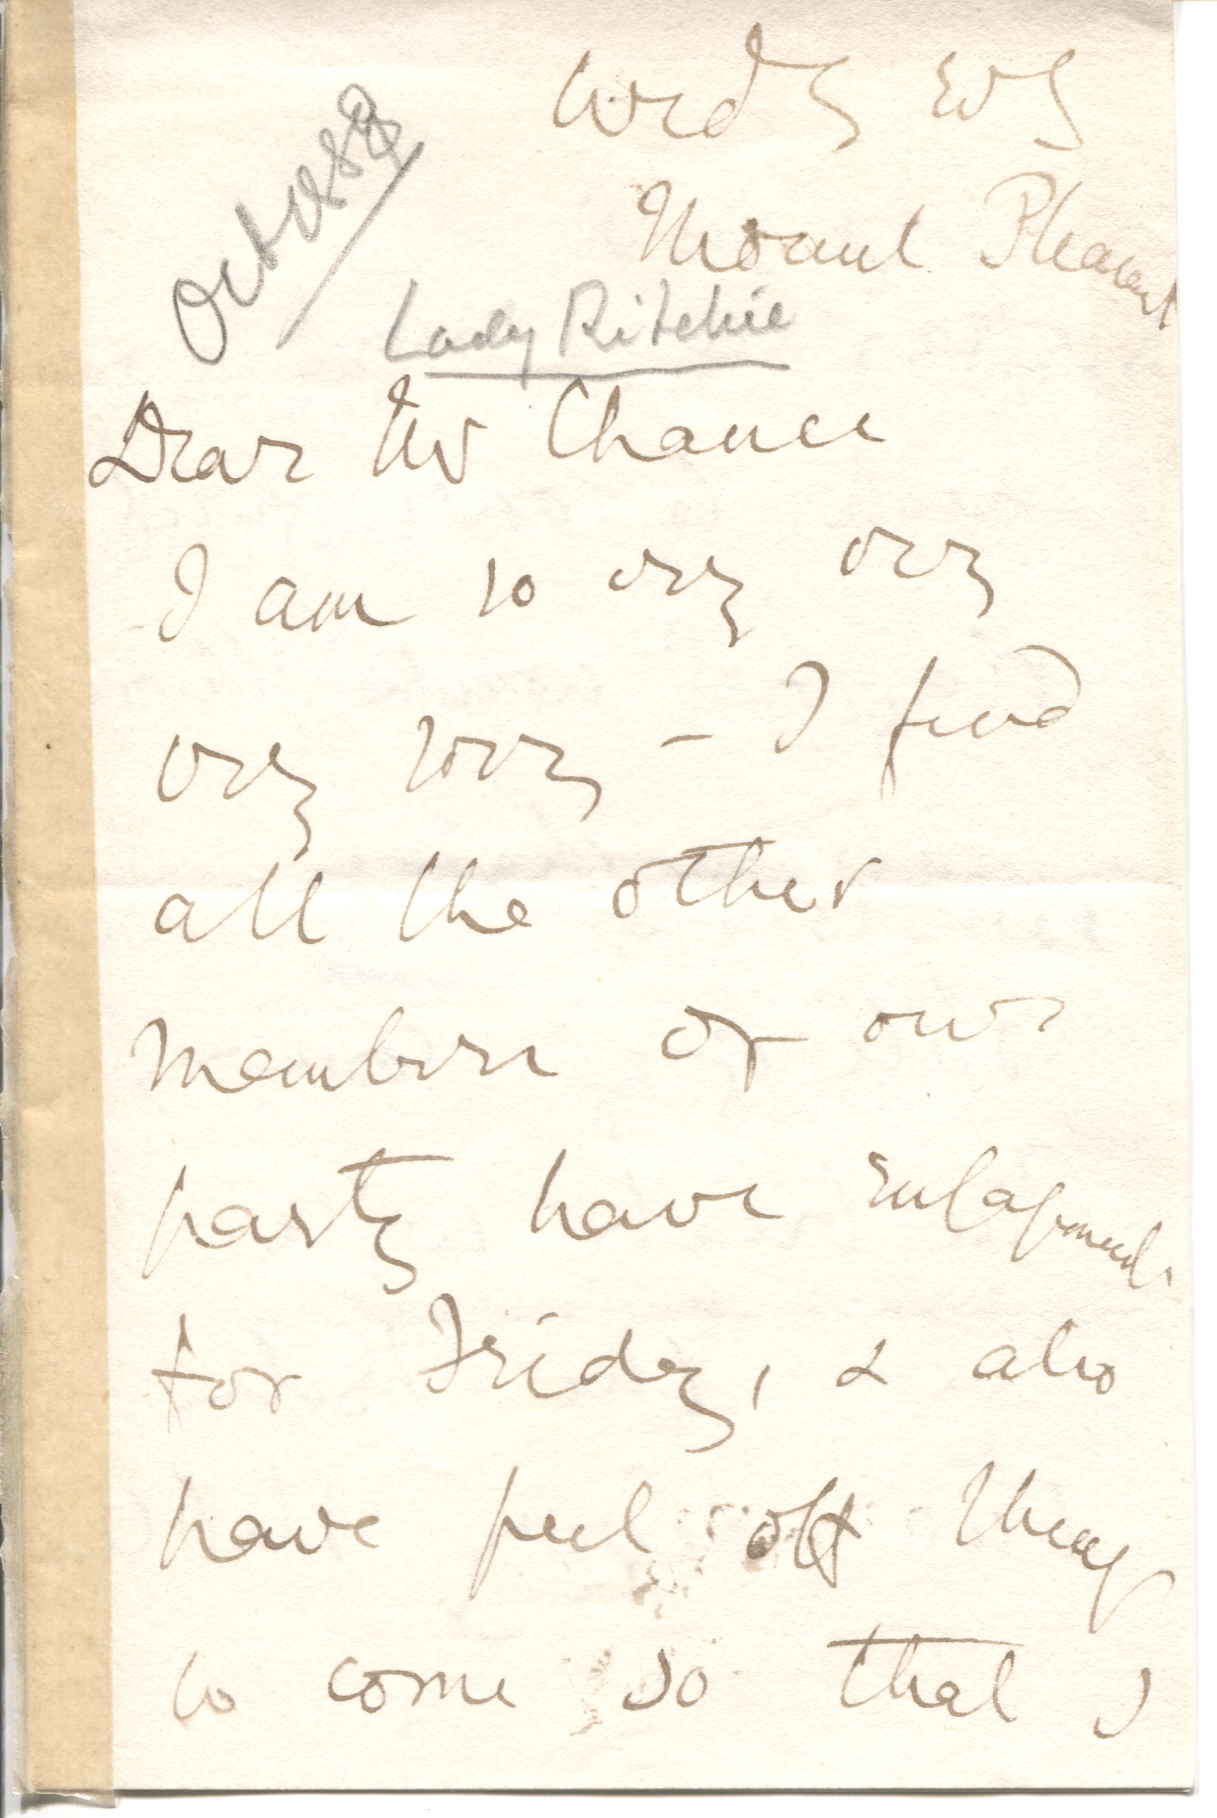 Wedy Evg
Mount Pleasant
Oct 1882
Lady Ritchie
Dear Mr Chance
I am so very very
very sorry – I find
all the other
members of our
party have engagements
for Friday, & also
have put off things
to come so that I